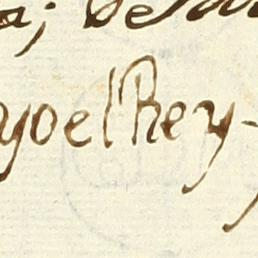 a; de
yo el Rey